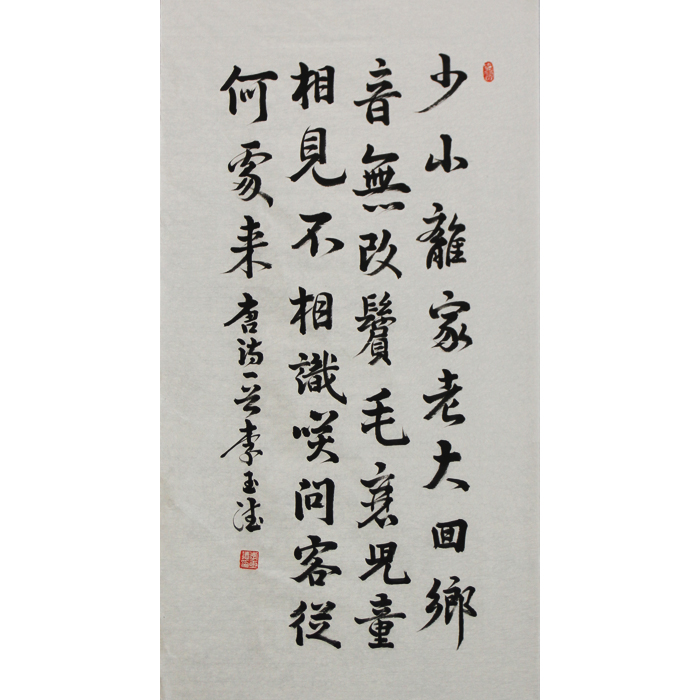 少小離家老大回鄉
音無改鬢毛衰兒童
相見不相識咲問客從
何處来唐詩一首李玉德